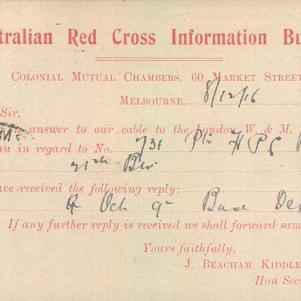 tralian Red Cross Information Bu
Colonial Mutual Chambers, 60 Market Street
Melbourne, 8/12/16
Sir,
answer to our cable to the London W. & M.
au in regard to No. 731 Pte H P G
21st Bn
ave received the following reply:
Oct 9th Base De
If any further reply is received we shall forward sam
Yours faithfully,
J. Beacham Kiddle
Hon Sec